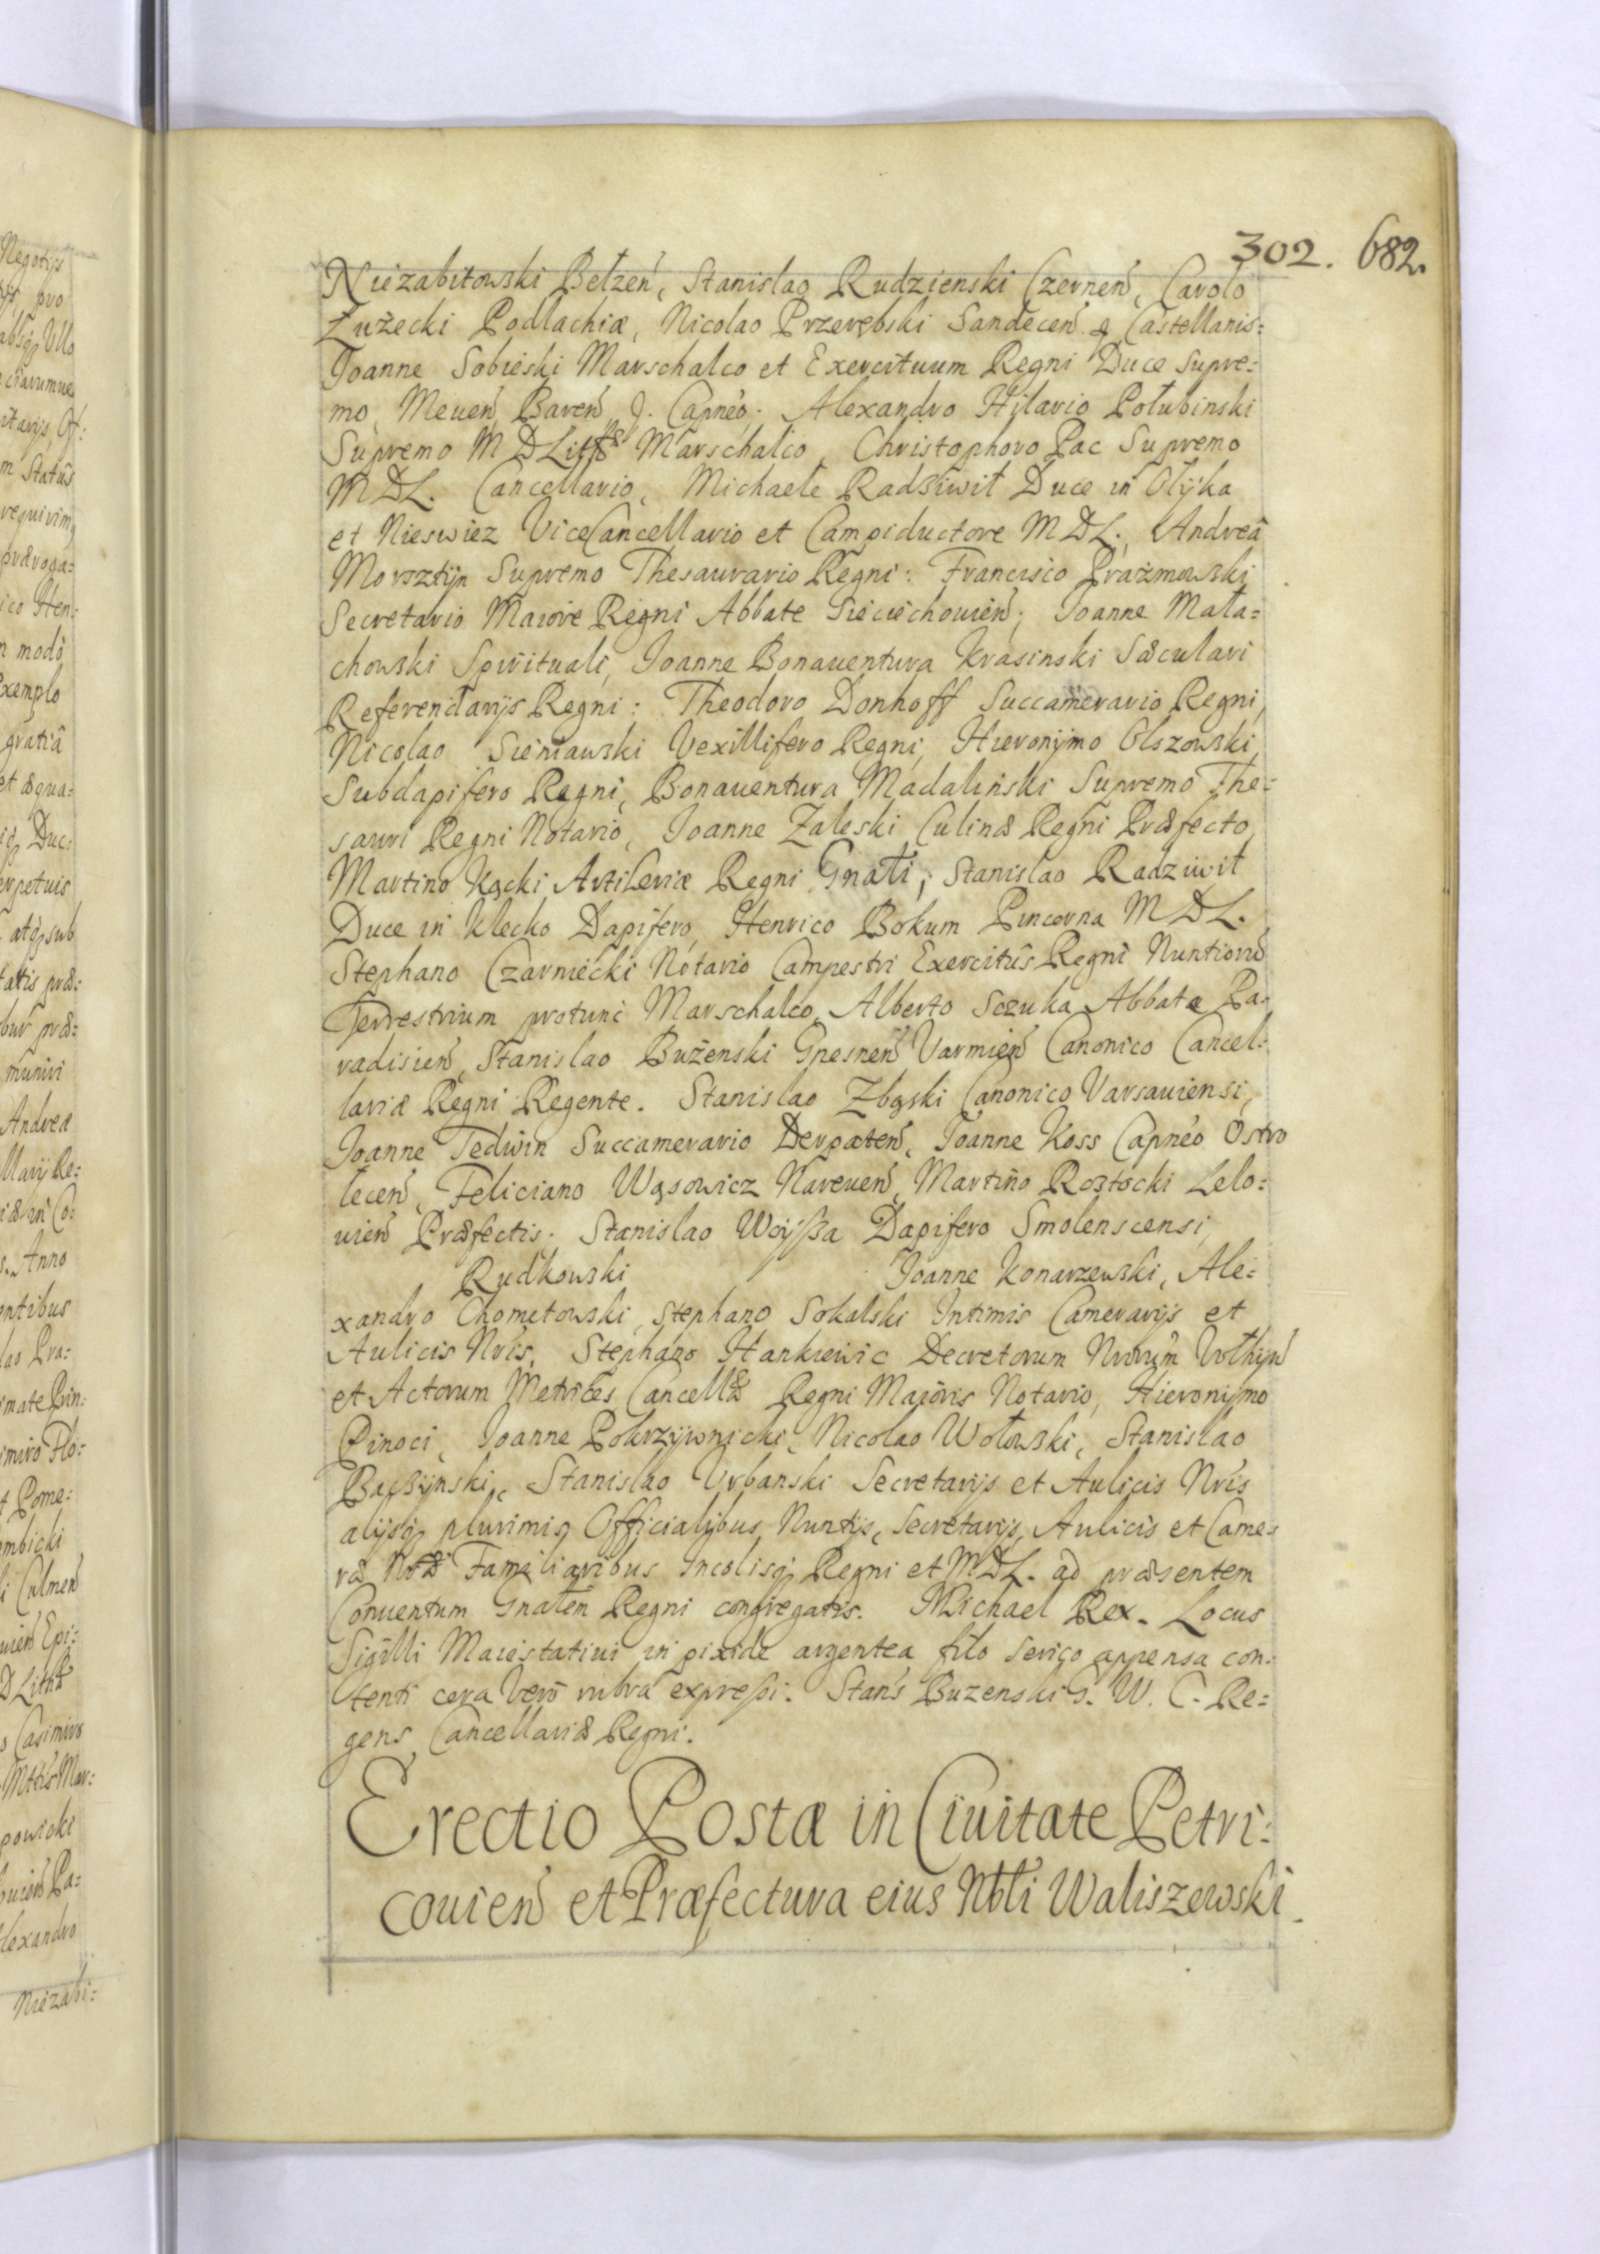 302. 682.
Niezabitowski Bełzeń, Stanislao Rudzienski Czerneń, Carolo
Łużecki Podlachiæ, Nicolao Przerębski Sandeceń & Castellanis:
Joanne Sobieski Marschalco et Exercituum Regni Duce Supre=
mo, Meueń, Bareń J. Capnéo. Alexandro Hilario Połubinski
Supremo M D Litt Marschalco, Christophoro Pac Supremo
MDL. Cancellario, Michaele Radziwił Duce in Ołyka
et Nieswiez ViceCancellario et Campiductore MDL., Andreâ
Morsztÿn Supremo Thesaurario Regni: Francisco Prażmowski
Secretario Maiore Regni Abbate Sieciechouień; Joanne Mała=
chowski Spirituali, Joanne Bonauentura Krasinski Sæculari
Referendarÿs Regni: Theodoro Donhoff Succamerario Regni,
Nicolao Sieniawski Vexillifero Regni, Hieronÿmo Olszowski,
Subdapifero Regni, Bonauentura Madaliński Supremo The=
sauri Regni Notario, Joanne Zaleski Culinæ Regni Præfecto,
Martino Kącki Artileriæ Regni Gnãli; Stanislao Radziwił
Duce in Klecko Dapifero, Henrico Bokum Pincerna MDL.
Stephano Czarniecki Notario Campestri Exercitûs Regni Nuntiorũ
Terrestrium protunc Marschalco, Alberto Sczuka Abbate Pa=
radisień, Stanislao Bużenski Gnesneń Varmień Canonico Cancel=
lariæ Regni Regente. Stanislao Zbąski Canonico Varsauiensi,
Joanne Tedwin Succamerario Derpateń, Joanne Koss Capnéo Ostro
leceń, Feliciano Wąsowicz Nareueń, Martino Rostocki Lelo=
uień Præfectis; Stanislao Woÿssa Dapifero Smolenscensi,
Rudkowski Joanne Konarzewski, Ale=
xandro Chometowski, Stephano Sokalski Intimis Camerarÿs et
Aulicis Nris, Stephano Hankiewic Decretorum Nrorum Volhÿń
et Actorum Metrices Cancellæ Regni Maioris Notario, Hieronÿmo
Pinoci, Joanne Pokrzÿwnicki, Nicolao Wołowski, Stanislao
Baczÿnski, Stanislao Vrbanski Secretarÿs et Aulicis Nris
alÿsq plurimis Officialibus, Nuntÿs, Secretarÿs, Aulicis et Came=
ræ Nræ Familiaribus Incolisq Regni et MDL. ad præsentem
Conuentum Gnalem Regni congregatis. Michael Rex. Locus
Sigilli Maiestatiui in pixide argentea filo serico appensa con=
tenti cera verò rubra expressi. Stans Buzenski G. W. C. Re=
gens Cancellariæ Regni.
Erectio Postæ in Ciuitate Petri=
couień et Præfectura eius Nbli Waliszewski.